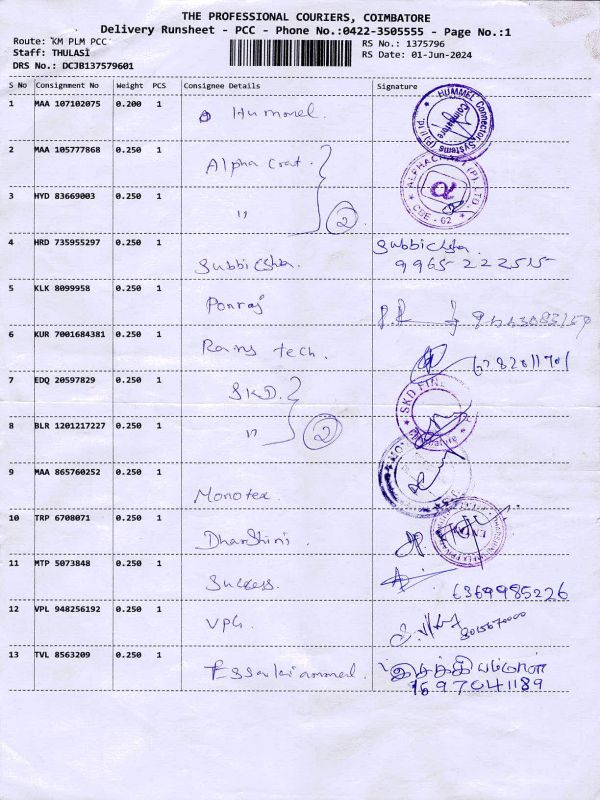 THE PROFESSIONAL COURIERS, COIMBATORE
Delivery Runsheet - PCC - Phone No.:0422-3505555 - Page No.:1
Route: KM PLM PCC
RS No.: 1375796
Staff: THULASI
RS Date: 01-Jun-2024
DRS No.: DCJB137579601
S No Consignment No Weight PCS Consignee Details Signature
1 MAA 107102075 0.200 1 Hummel.
HUMMEL Connector Systems (P) Coimbatore
2 MAA 105777868 0.250 1 Alpha Craft.
ALPHACRAFT (P) LTD. CBE - 62
3 HYD 83669003 0.250 1 " 2
4 HRD 735955297 0.250 1 Subbiksha. Subbiksha.
9965222515
5 KLK 8099958 0.250 1 Ponraj
6 KUR 7001684381 0.250 1 Rams tech.
7 EDQ 20597829 0.250 1 SKD.
SKD
8 BLR 1201217227 0.250 1 " 2
9 MAA 865760252 0.250 1 Monotex.
10 TRP 6708071 0.250 1 Dharshini.
11 MTP 5073848 0.250 1 Success. 6369985226
12 VPL 948256192 0.250 1 VPG.
13 TVL 8563209 0.250 1 Essakiammal. இசக்கியம்மாள்